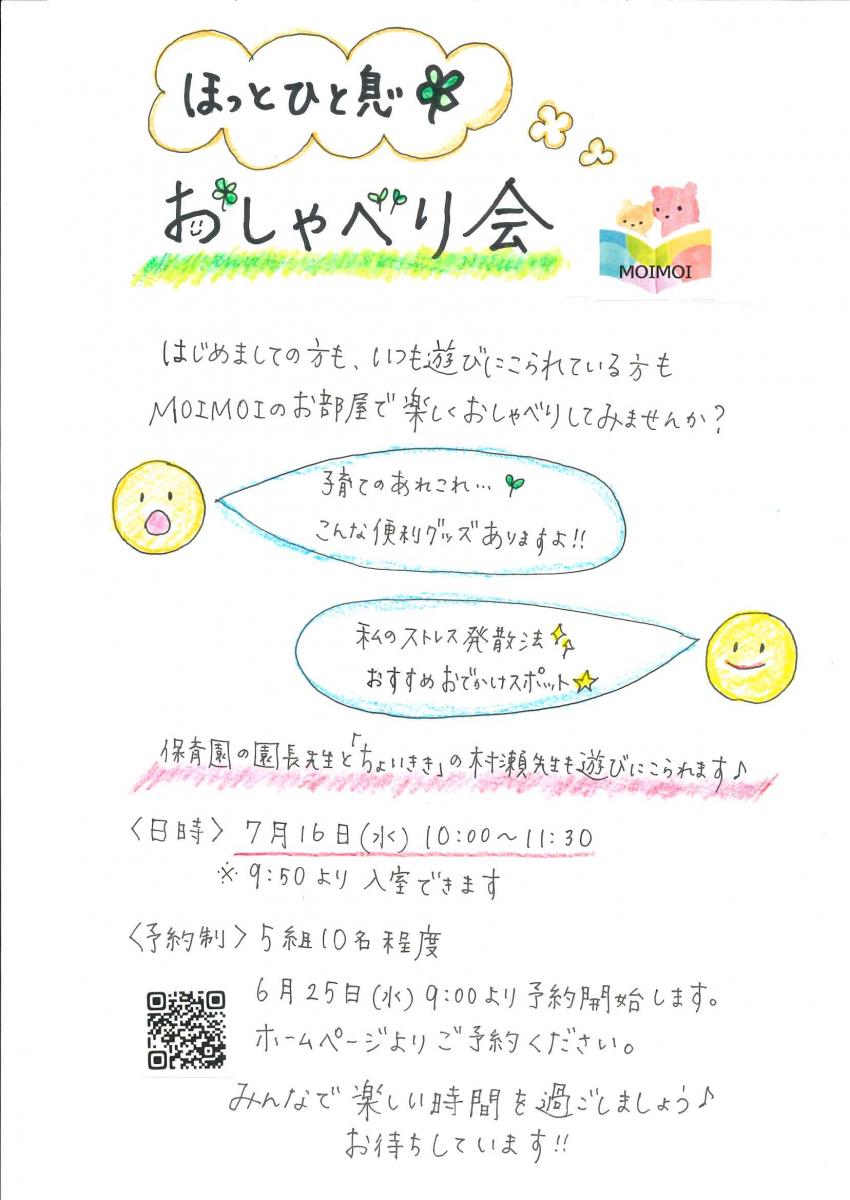 ほっとひと息
おしゃべり会
MOIMOI
はじめましての方も、いつも遊びにこられている方も
MOIMOIのお部屋で楽しくおしゃべりしてみませんか？
子育てのあれこれ…
こんな便利グッズありますよ!!
私のストレス発散法
おすすめおでかけスポット
保育園の園長先生と「ちょいきき」の村瀬先生も遊びにこられます♪
〈日時〉 7月16日(水) 10:00～11:30
※ 9:50より 入室できます
〈予約制〉 5組10名程度
6月25日(水) 9:00より予約開始します。
ホームページよりご予約ください。
みんなで楽しい時間を過ごしましょう♪
お待ちしています!!